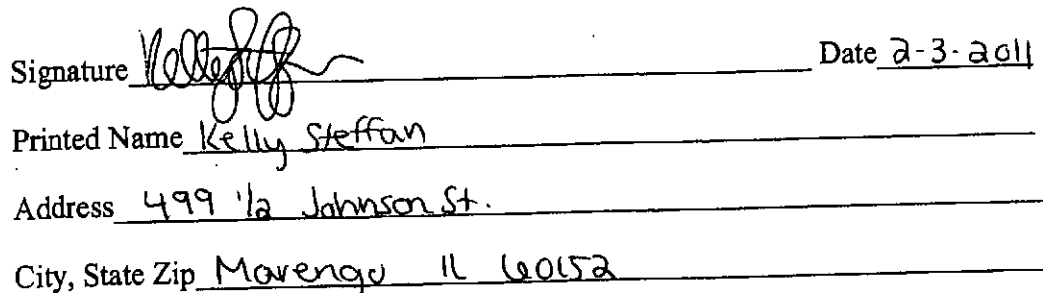 Signature Kelly Steffan Date 2-3-2011
Printed Name Kelly Steffan
Address 499 1/2 Johnson St.
City, State Zip Marengo IL 60152